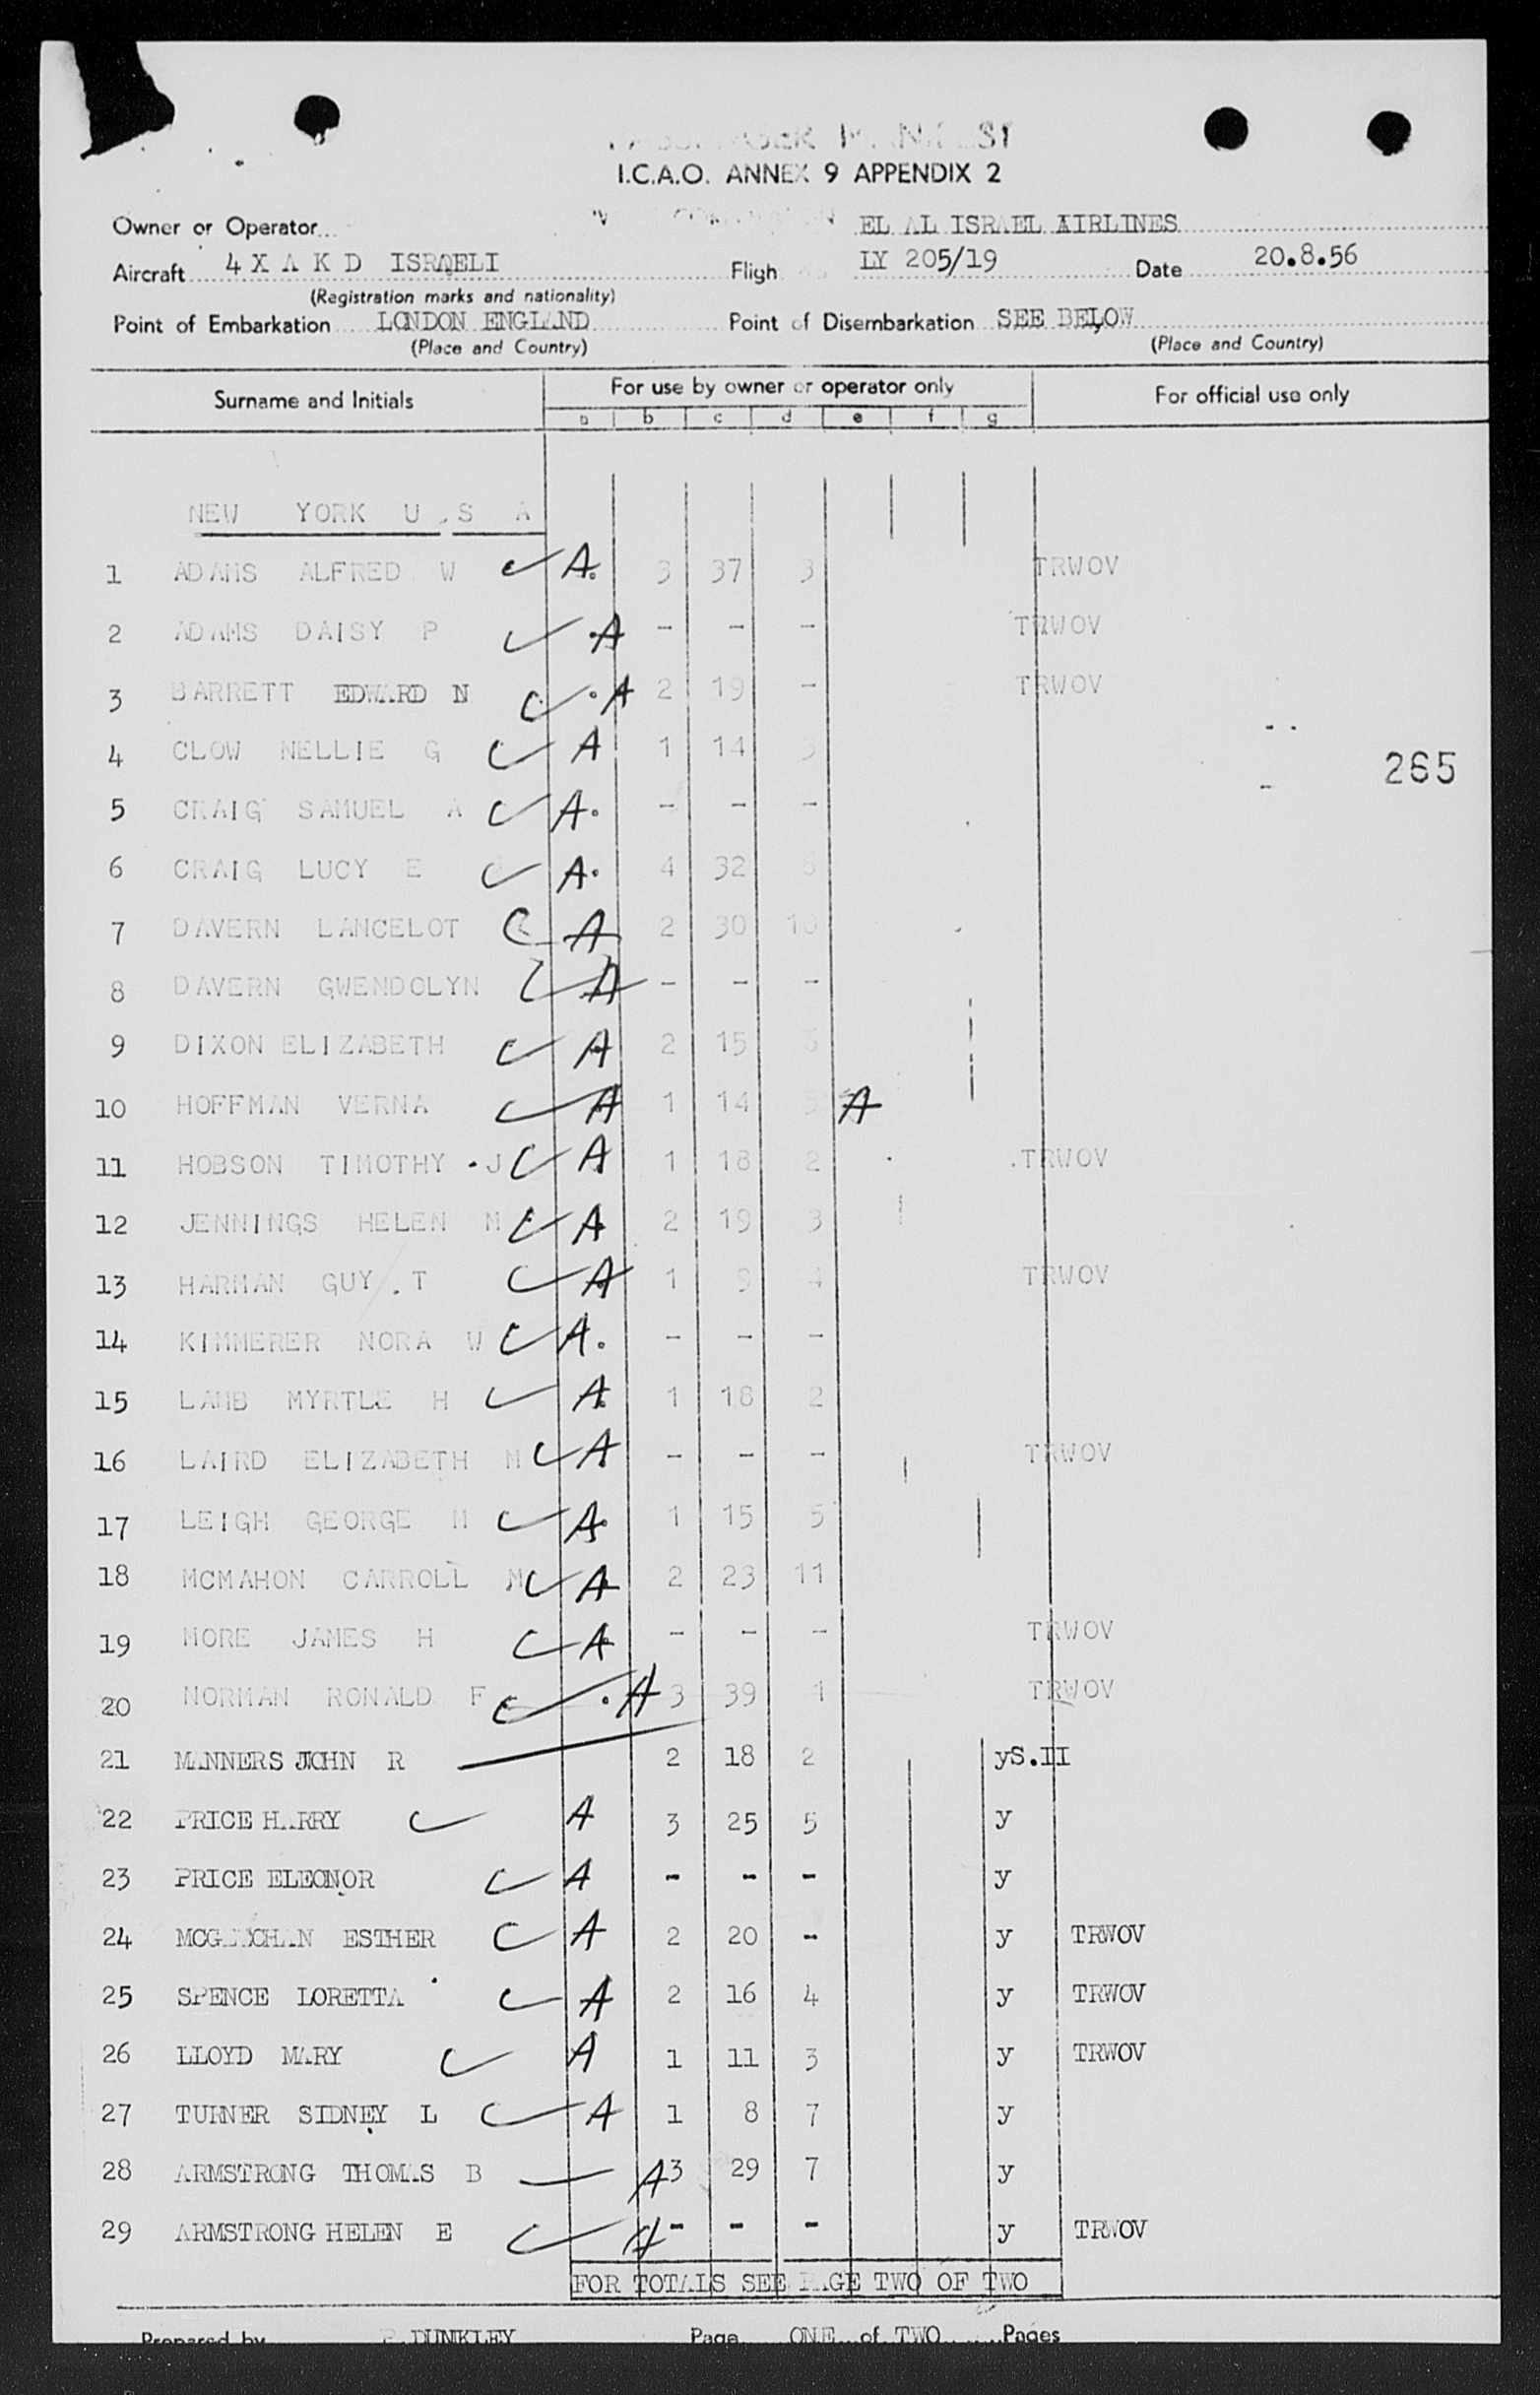 PASSENGER MANIFEST
I.C.A.O. ANNEX 9 APPENDIX 2
Owner or Operator EL AL ISRAEL AIRLINES
Aircraft 4 X A K D ISRAELI Fligh LY 205/19 Date 20.8.56
(Registration marks and nationality)
Point of Embarkation LONDON ENGLAND Point of Disembarkation SEE BELOW
(Place and Country) (Place and Country)
Surname and Initials For use by owner or operator only For official use only
a b c d e f g
NEW YORK U.S A
1 ADAMS ALFRED W A. 3 37 3 TRWOV
2 ADAMS DAISY P A - - - TRWOV
3 BARRETT EDWARD N A 2 19 - TRWOV
4 CLOW NELLIE G A 1 14 3
265
5 CRAIG SAMUEL A A. - - -
6 CRAIG LUCY E A. 4 32 6
7 DAVERN LANCELOT A 2 30 10
8 DAVERN GWENDOLYN A - - -
9 DIXON ELIZABETH A 2 15
10 HOFFMAN VERNA A 1 14 A
11 HOBSON TIMOTHY J A 1 18 2 TRWOV
12 JENNINGS HELEN M A 2 19 3
13 HARMAN GUY . T A 1 9 4 TRWOV
14 KIMMERER NORA W A. - - -
15 LAMB MYRTLE H A 1 18 2
16 LAIRD ELIZABETH M A - - - TRWOV
17 LEIGH GEORGE M A 1 15 5
18 MCMAHON CARROLL M A 2 23 11
19 MORE JAMES H A - - - TRWOV
20 NORMAN RONALD F A 3 39 1 TRWOV
21 MANNERS JOHN R 2 18 2 yS.II
22 PRICE HARRY A 3 25 5 y
23 PRICE ELEONOR A - - - y
24 ESTHER A 2 20 - y TRWOV
25 SPENCE LORETTA A 2 16 4 y TRWOV
26 LLOYD MARY A 1 11 3 y TRWOV
27 TURNER SIDNEY L A 1 8 7 y
28 ARMSTRONG THOMAS B A 3 29 7 y
29 ARMSTRONG HELEN E A - - - y TRWOV
FOR TOTALS SEE PAGE TWO OF TWO
Prepared by P.DUNKLEY Page ONE of TWO Pages